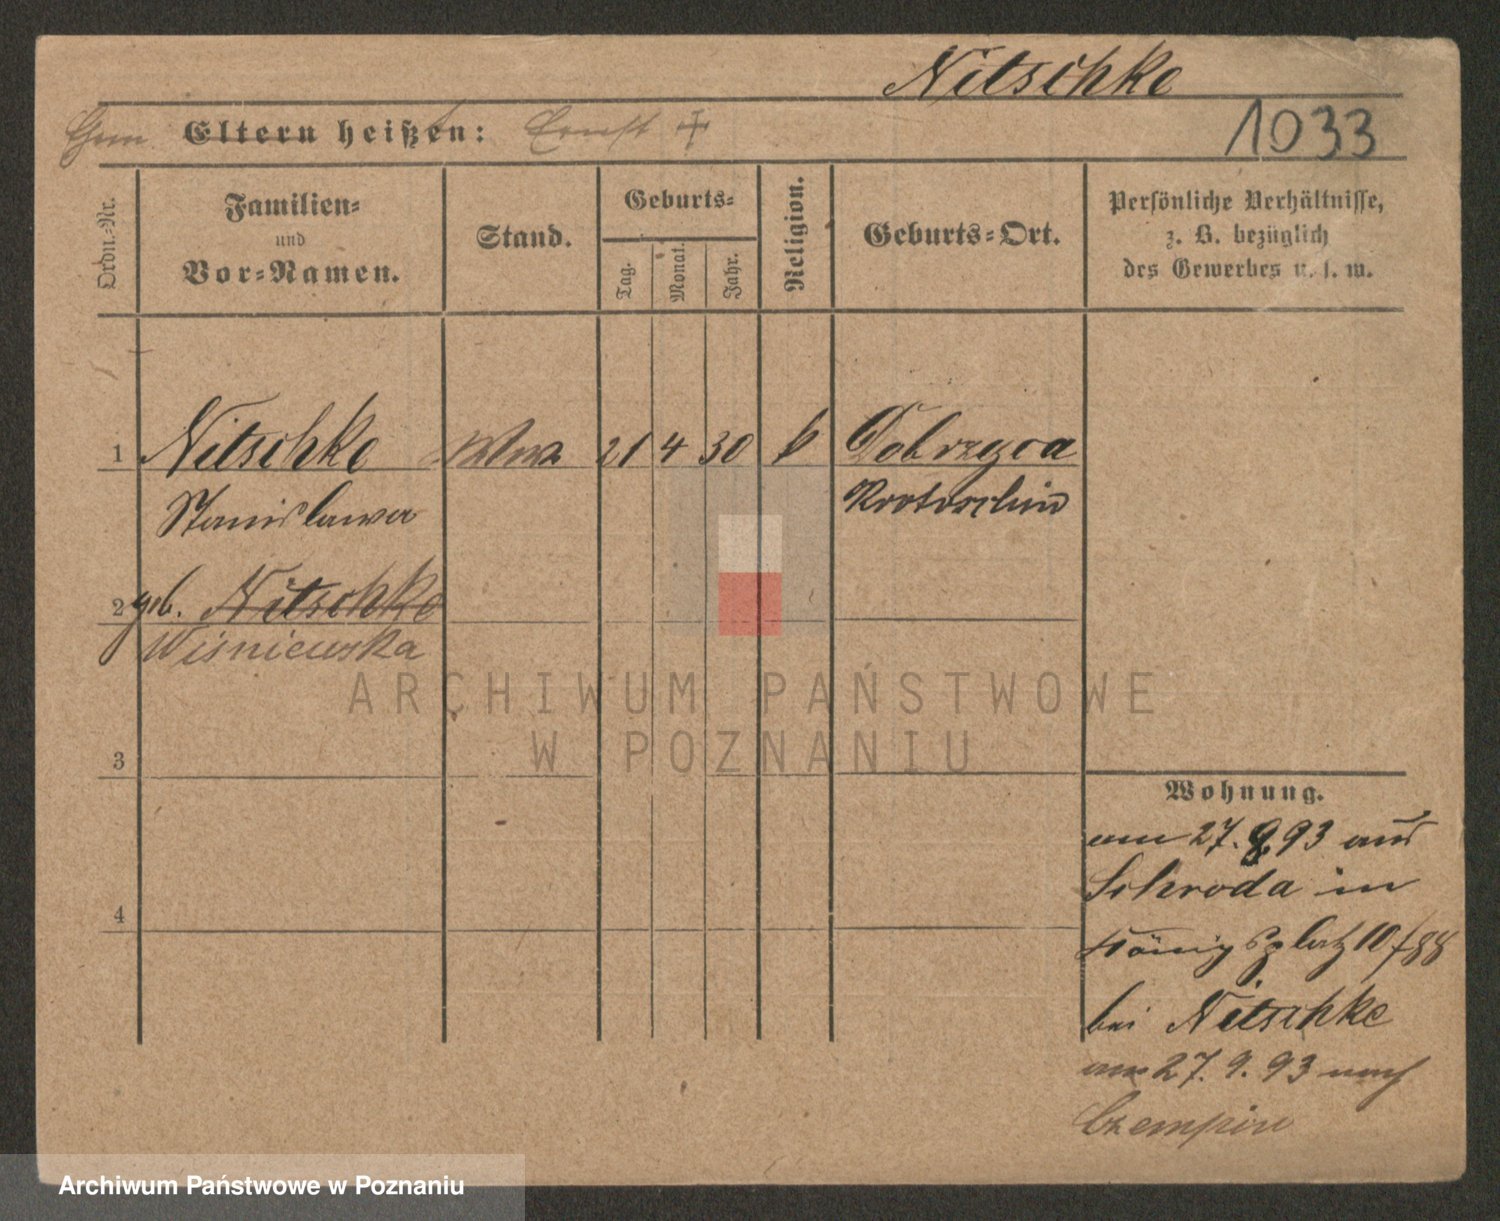 Nitschke
Eltern heißen: Ernst +
1033
Ordn.-Nr.
Familien-
und
Vor-Namen.
Stand.
Geburts-
Tag.
Monat.
Jahr.
Religion.
Geburts-Ort.
Persönliche Verhältnisse,
z. B. bezüglich
des Gewerbes u. s. w.
1 Nitschke Wwe 21 4 30 k Dobrzyca
Stanislawa Krotoschin
2 geb. Nitschke
Wisniewska
3
4
Wohnung.
am 27. 9 93 aus
Schroda in
Königsplatz 10/88
bei Nitschke
am 27. 9. 93 nach
Czempin
ARCHIWUM PAŃSTWOWE
W POZNANIU
Archiwum Państwowe w Poznaniu